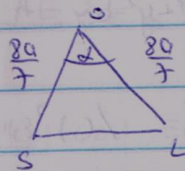 O
80/7 α 80/7
S L